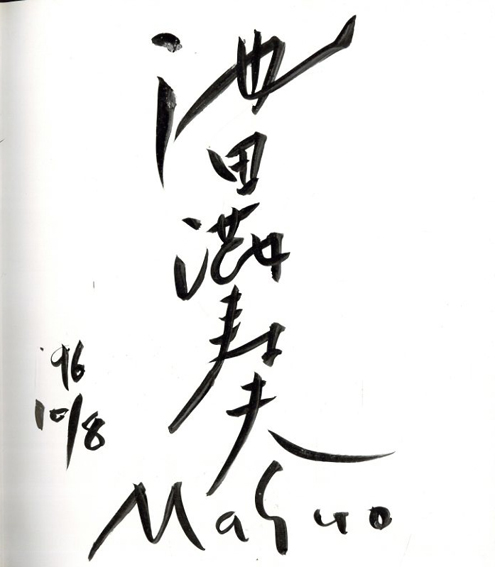 池田満寿夫
'96
10/8
Masuo